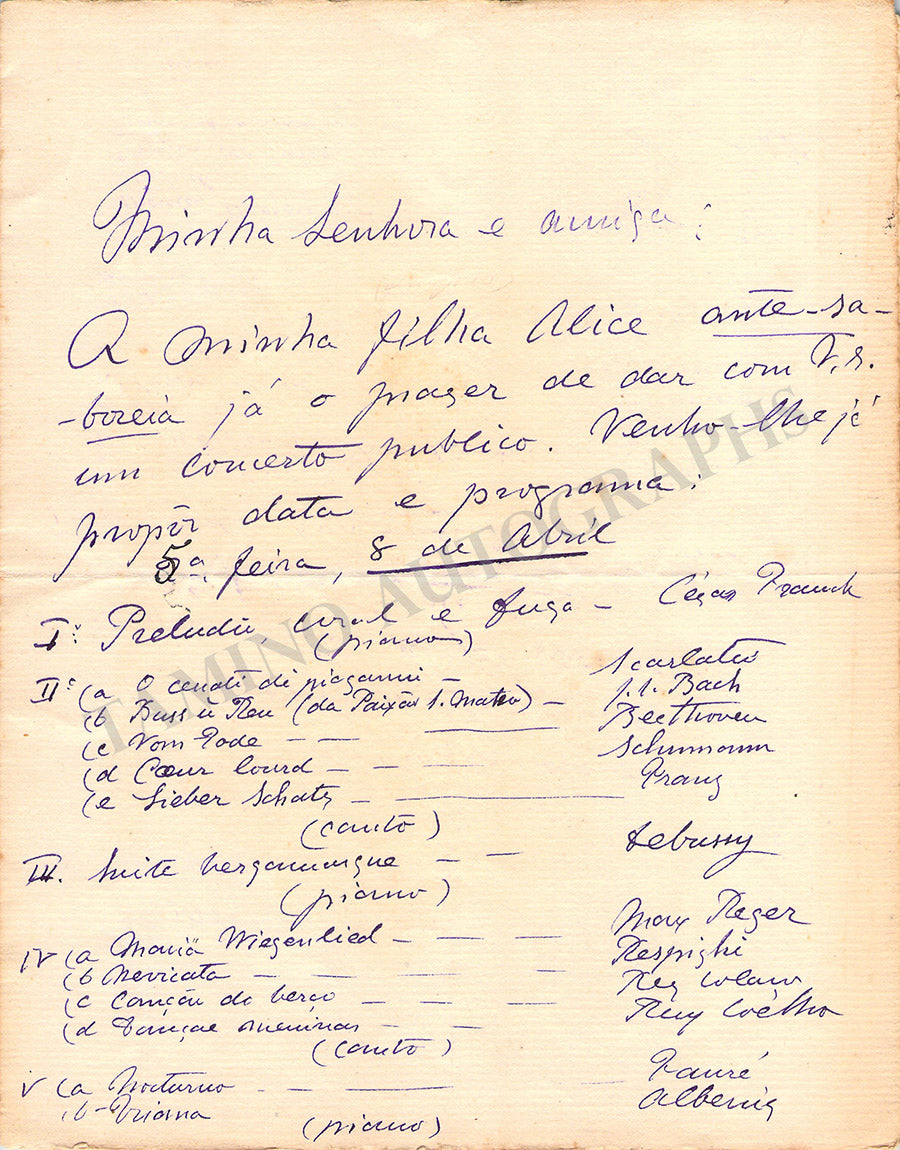 Minha Senhora e amiga:
A minha filha Alice ante-sa-
-boreia já o prazer de dar com V. S.
um concerto publico. Venho-lhe já
propôr data e programma:
5ª feira, 8 de Abril
I.º Preludio, coral e fuga – César Franck
(piano)
II.º (a O cessate di piagarmi – Scarlatti
(b Buss ü Reu (da Paixão S. Mateu) – J. S. Bach
(c Vom Tode – – – Beethoven
(d Cœur lourd – – – Schumann
(e Lieber Schatz – Franz
(canto)
III. Suite bergamasque – – Debussy
(piano)
IV (a Mariä Wiegenlied – – – Max Reger
(b Nevicata – – – – Respighi
(c Canção do berço – – – Rey Colaço
(d Dançae meninas – – Ruy Coêlho
(canto)
V (a Nocturno – – Fauré
(b – Triana Albeniz
(piano)
TAMINO AUTOGRAPHS